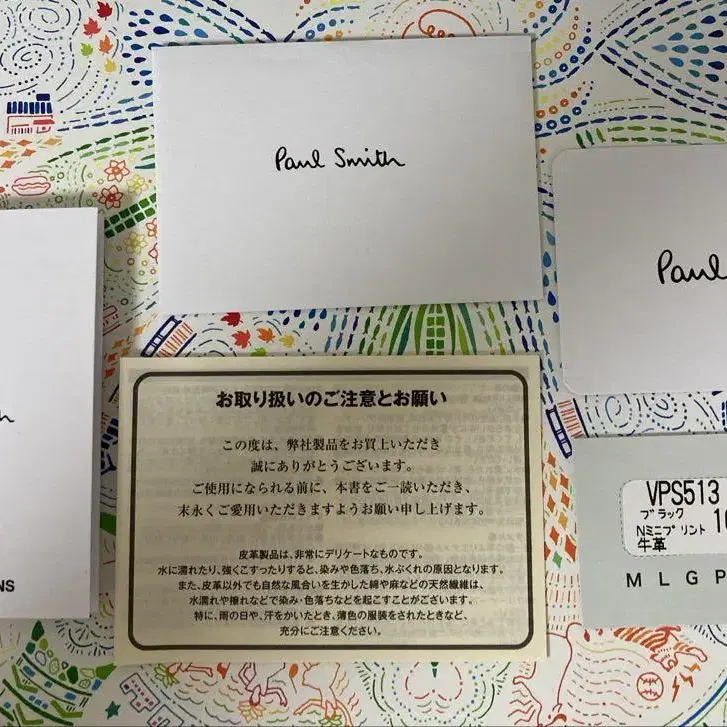 Paul Smith
Paul
h
NS
お取り扱いのご注意とお願い
この度は、弊社製品をお買上いただき
誠にありがとうございます。
ご使用になられる前に、本書をご一読いただき、
末永くご愛用いただきますようお願い申し上げます。
皮革製品は、非常にデリケートなものです。
水に濡れたり、強くこすったりすると、染みや色落ち、水ぶくれの原因となります。
また、皮革以外でも自然な風合いを生かした綿や麻などの天然繊維は、
水濡れや擦れなどで染み・色落ちなどを起こすことがございます。
特に、雨の日や、汗をかいたとき、薄色の服装をされたときなど、
充分にご注意ください。
VPS513
ブラック
Nミニプリント 10
牛革
M L G P